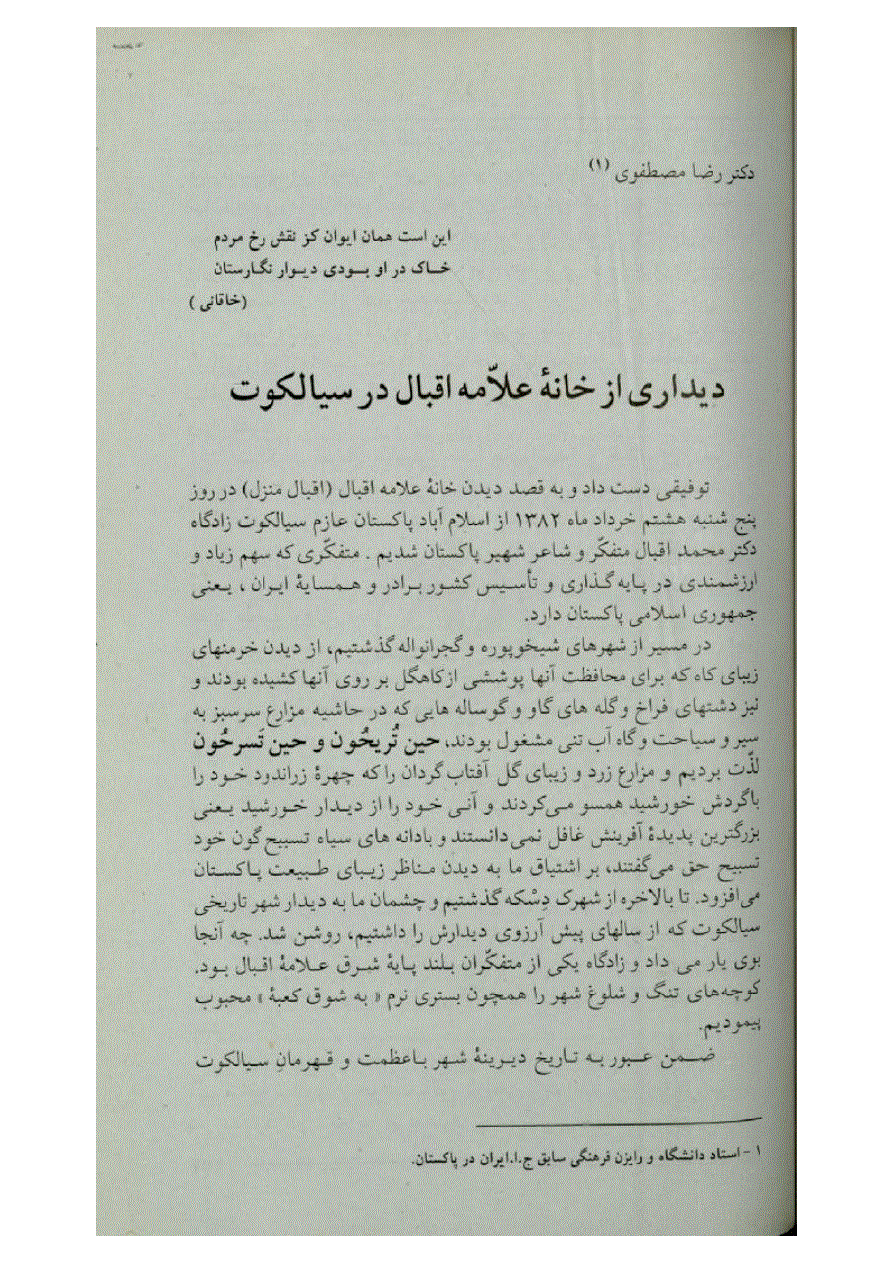 دکتر رضا مصطفوی (۱)
این است همان ایوان کز نقش رخ مردم
خـاک در او بـودی دیـوار نگـارستان
(خاقانی)
دیداری از خانهٔ علاّمه اقبال در سیالکوت
توفیقی دست داد و به قصد دیدن خانهٔ علامه اقبال (اقبال منزل) در روز
پنج شنبه هشتم خرداد ماه ۱۳۸۲ از اسلام آباد پاکستان عازم سیالکوت زادگاه
دکتر محمد اقبال متفکّر و شاعر شهیر پاکستان شدیم . متفکّری که سهم زیاد و
ارزشمندی در پایه گذاری و تأسیس کشور برادر و همسایهٔ ایران ، یعنی
جمهوری اسلامی پاکستان دارد.
در مسیر از شهرهای شیخوپوره و گجرانواله گذشتیم، از دیدن خرمنهای
زیبای کاه که برای محافظت آنها پوششی از کاهگل بر روی آنها کشیده بودند و
نیز دشتهای فراخ و گله های گاو و گوساله هایی که در حاشیه مزارع سرسبز به
سیر و سیاحت و گاه آب تنی مشغول بودند، حین تُریحُون و حین تَسرحُون
لذّت بردیم و مزارع زرد و زیبای گل آفتاب گردان را که چهرهٔ زراندود خـود را
با گردش خورشید همسو می‌کردند و آنـی خـود را از دیـدار خـورشید یـعنی
بزرگترین پدیدهٔ آفرینش غافل نمی‌دانستند و با دانه های سیاه تسبیح گون خود
تسبیح حق می‌گفتند، بر اشتیاق ما به دیدن مـناظر زیـبای طـبیعت پـاکسـتان
می‌افزود. تا بالاخره از شهرک دِسْکه گذشتیم و چشمان ما به دیدار شهر تاریخی
سیالکوت که از سالهای پیش آرزوی دیدارش را داشتیم، روشن شد. چه آنجا
بوی یار می داد و زادگاه یکی از متفکّران بـلند پـایهٔ شـرق عـلامهٔ اقبال بـود.
کوچه‌های تنگ و شلوغ شهر را همچون بستری نرم « به شوق کعبهٔ » محبوب
پیمودیم.
ضـمن عـبور بـه تـاریخ دیـرینهٔ شـهر بـاعظمت و قـهرمانِ سـیالکوت
۱ - استاد دانشگاه و رایزن فرهنگی سابق ج.ا.ایران در پاکستان.